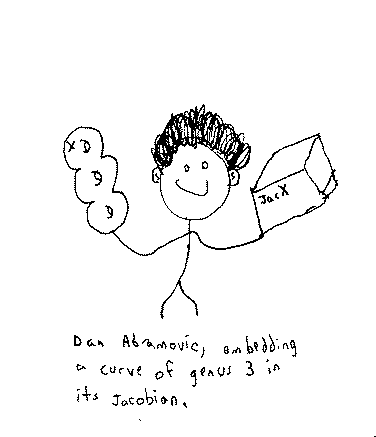 X
Jac X
Dan Abramovic, embedding
a curve of genus 3 in
its Jacobian.